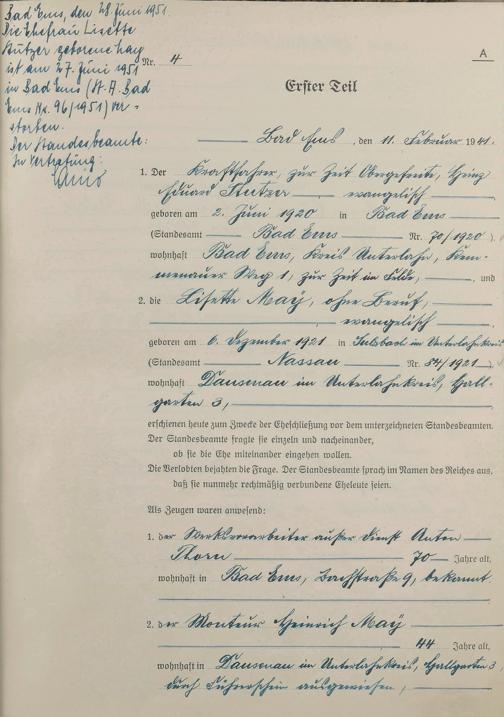 Bad Ems, den 28. Juni 1951.
Die Ehefrau Lisette
Stutzer geborene May
ist am 27. Juni 1951
in Bad Ems (St. A. Bad
Ems Nr. 96/1951) ver-
storben.
Der Standesbeamte:
In Vertretung:
A
Nr. 4
Erster Teil
Bad Ems, den 11. Februar 1941.
1. Der Kraftfahrer, zur Zeit Obergefreite, Heinz
Eduard Stutzer, evangelisch,
geboren am 2. Juni 1920 in Bad Ems
(Standesamt Bad Ems Nr. 70/1920),
wohnhaft Bad Ems, Kreis Unterlahn, Kem-
menauer Weg 1, zur Zeit im Felde, und
2. die Lisette May, ohne Beruf,
evangelisch,
geboren am 6. Dezember 1921 in Sulzbach im Unterlahnkreis
(Standesamt Nassau Nr. 54/1921),
wohnhaft Dausenau im Unterlahnkreis, Hall-
garten 3,
erschienen heute zum Zwecke der Eheschließung vor dem unterzeichneten Standesbeamten.
Der Standesbeamte fragte sie einzeln und nacheinander,
ob sie die Ehe miteinander eingehen wollen.
Die Verlobten bejahten die Frage. Der Standesbeamte sprach im Namen des Reiches aus,
daß sie nunmehr rechtmäßig verbundene Eheleute seien.
Als Zeugen waren anwesend:
1. der Werksvorarbeiter außer Dienst Anton
Thorn 70 Jahre alt,
wohnhaft in Bad Ems, Bachstraße 9, bekannt
2. der Monteur Heinrich May
44 Jahre alt,
wohnhaft in Dausenau im Unterlahnkreis, Hallgarten 3,
durch Führerschein ausgewiesen,